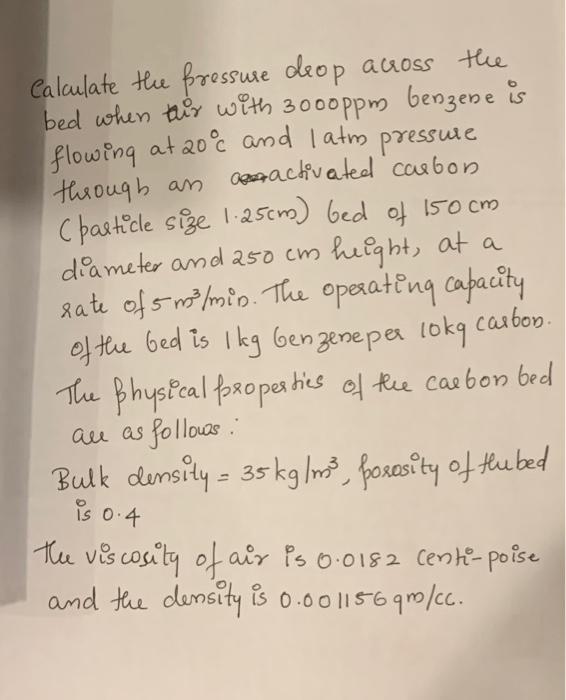 Calculate the pressure drop across the
bed when air with 3000ppm benzene is
flowing at 20°c and 1 atm pressure
through an activated carbon
(particle size 1.25cm) bed of 150 cm
diameter and 250 cm height, at a
rate of 5 m³/min. The operating capacity
of the bed is 1 kg benzene per 10kg carbon.
The physical properties of the carbon bed
are as follows :
Bulk density = 35 kg/m³, porosity of the bed
is 0.4
The viscosity of air is 0.0182 centi-poise
and the density is 0.001156 gm/cc.